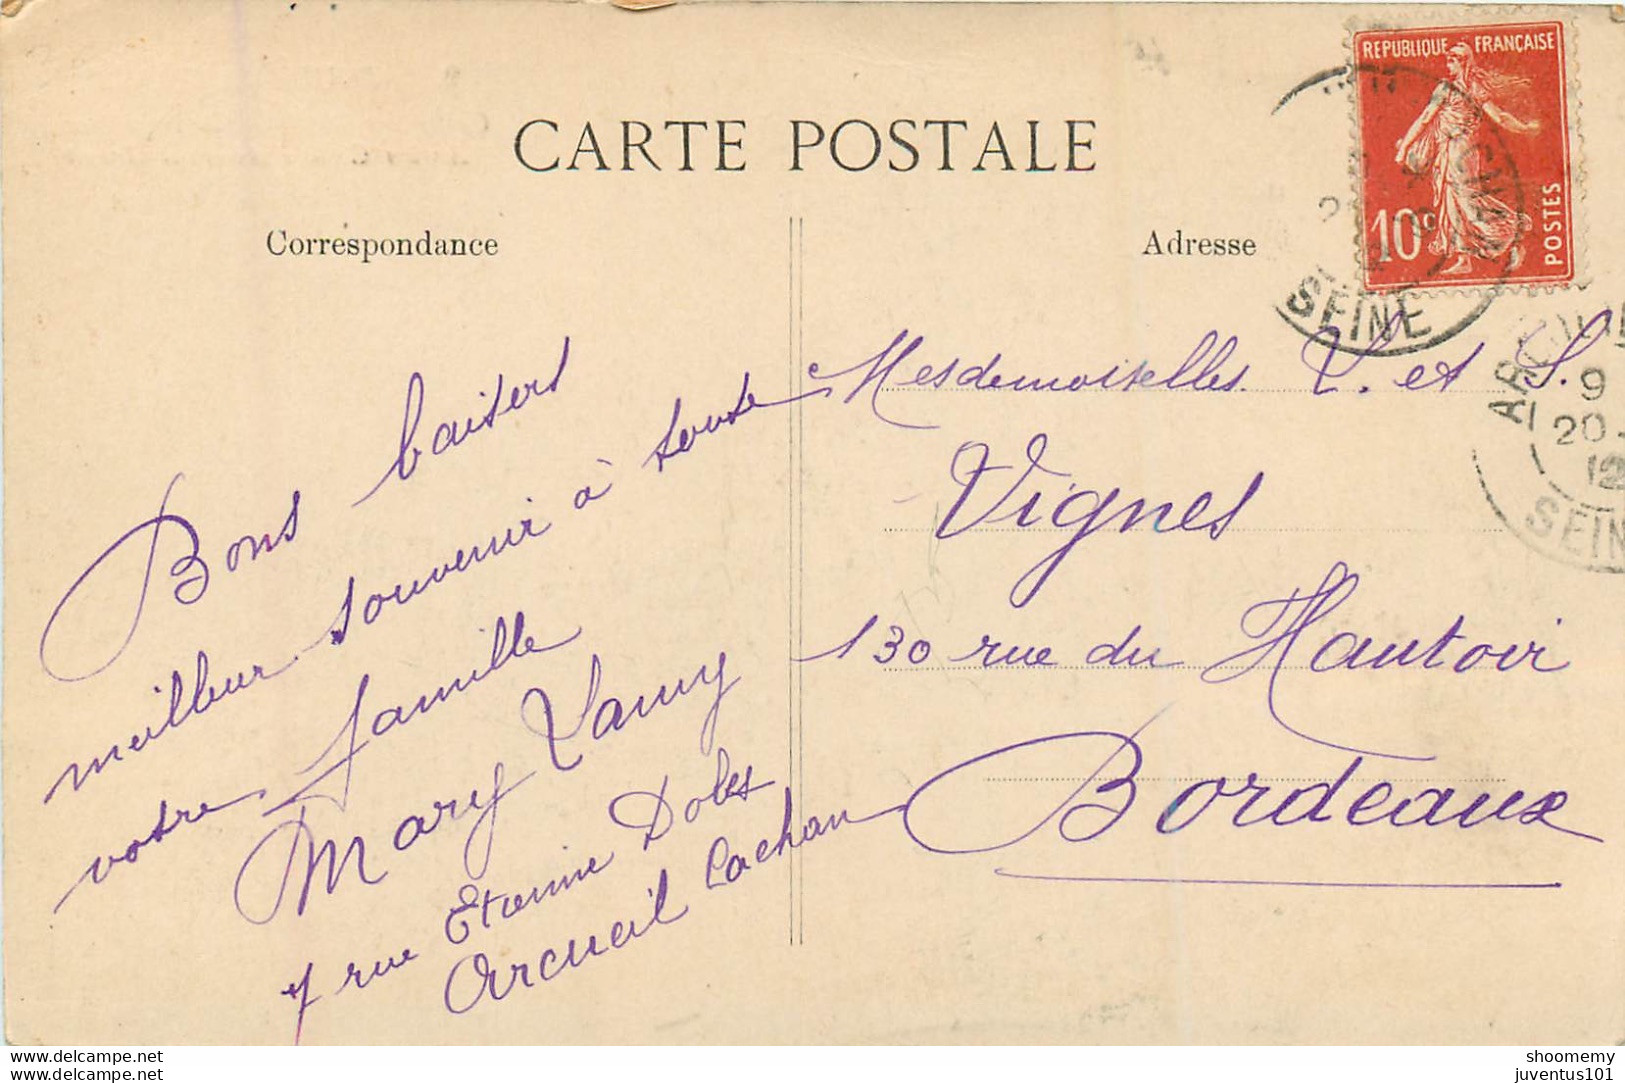 CARTE POSTALE
Correspondance
Adresse
REPUBLIQUE FRANÇAISE
10c
POSTES
SEINE
9
20
12
SEIN
Bons baisers
meilleur souvenir à toute
votre famille
Mary
7 rue Etienne Dolet
Arcueil Cachan
Mesdemoiselles Y. et S.
Vignes
130 rue du Hautoir
Bordeaux
www.delcampe.net
www.delcampe.net
shoomemy
juventus101